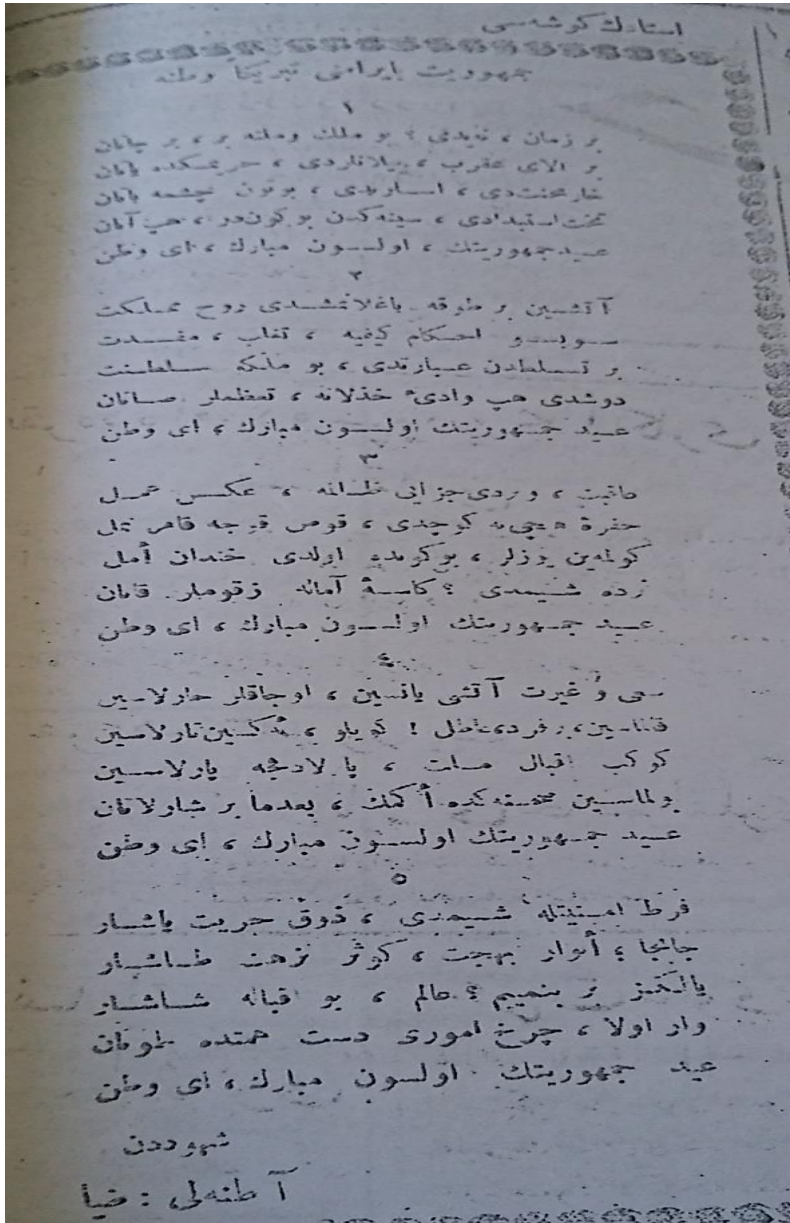 استادك كوشه‌سی
جمهوریت بایرامی تبریكا وطنه
١
بر زمان ، نه‌یدی ؟ بو ملك وملته بر ، بر چاتان
بر آلای عقرب ، ییلانلاردی ، حریمكده یاتان
خار محنتدی ، اسارتدی ، بوتون چشمه باتان
تخت استبدادی ، سینه‌كدن بوكوندر ، هپ آتان
عید جمهوریتك ، اولسون مبارك ، ای وطن
٢
آتشین بر طوقه باغلانمشدی روح مملكت
احكام كیفیه ، تغلب ، مفسدت
بر تسلطدن عبارتدی ، بو ملكه سلطنت
دوشدی هپ وادیٔ خذلانه ، تعظملر صاتان
عید جمهوریتك اولسون مبارك ، ای وطن
٣
عاقبت ، ویردی جزایی ظلمانه ، عكس عمل
حفرهٔ هیچی‌یه كوچدی ، قوص قوجه قاهر
كولمه‌ین یوزلر ، بوكونده اولدی خندان أمل
نرده شیمدی ؟ كاسهٔ آماله زقوملر قاتان
عید جمهوریتك اولسون مبارك ، ای وطن
٤
سعی و غیرت آتشی یانسین ، اوجاقلار خارلاسین
قالماسین ، بر فردی عاطل ! كویلو ، أكسین تارلاسین
كوكب اقبال ملت ، پارلادقجه پارلاسین
اولماسین صحنه‌كده أكمك ، بعدما بر شارلاتان
عید جمهوریتك اولسون مبارك ، ای وطن
٥
فرط امنیتله شیمدی ، ذوق حریت یاشار
جانجا ؛ أنوار بهجت ، كوثر نزهت طاشار
یالكز بر بنمییم ؟ عالم ، بو اقباله شاشار
وار اولا ، چرخ اموری دست همتده طوتان
عید جمهوریتك اولسون مبارك ، ای وطن
شهوددن
آطنه‌لی : ضیا